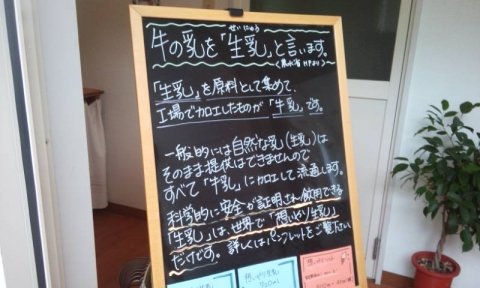 せいにゅう
牛の乳を「生乳」と言います。
(農水省HPより)
「生乳」を原料として集めて、
工場で加工したものが「牛乳」です。
一般的には自然な乳(生乳)は
そのまま提供はできませんので
すべて「牛乳」に加工して流通します。
科学的に安全が証明され飲用できる
「生乳」は、世界で「想いやり生乳」
だけです。詳しくは、パンフレットをご覧ください
想いやり生乳
720ml